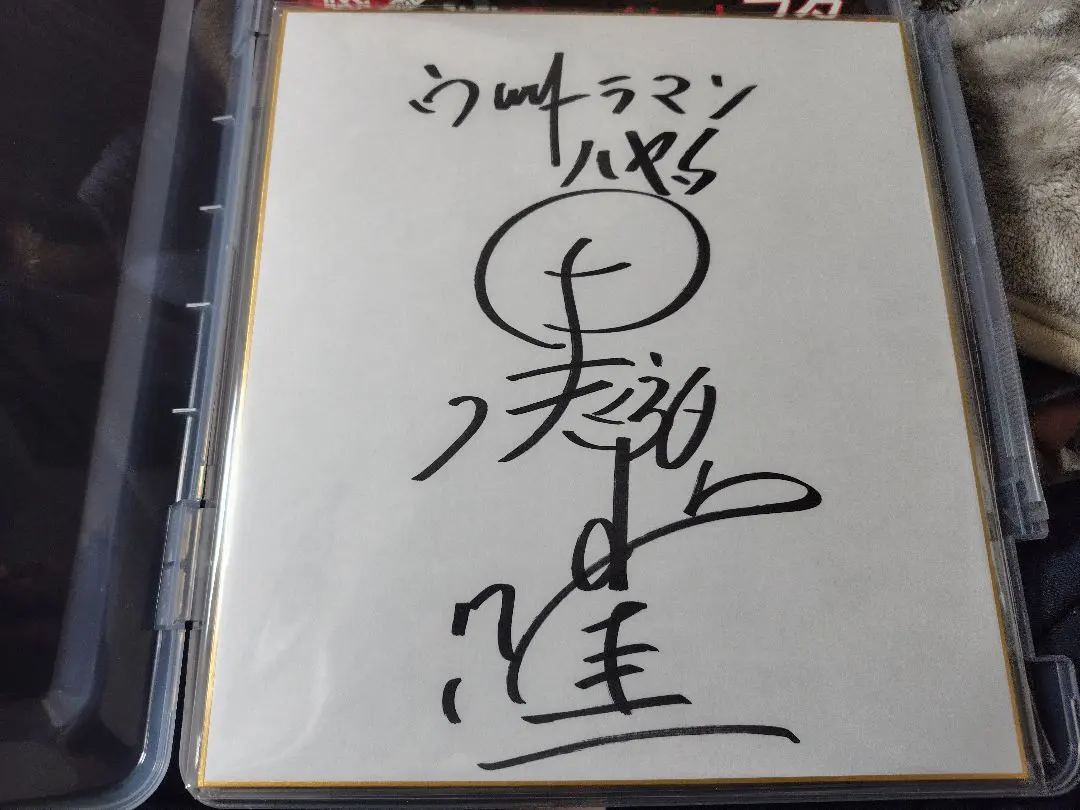 ウルトラマン
ハヤタ
黒部
進